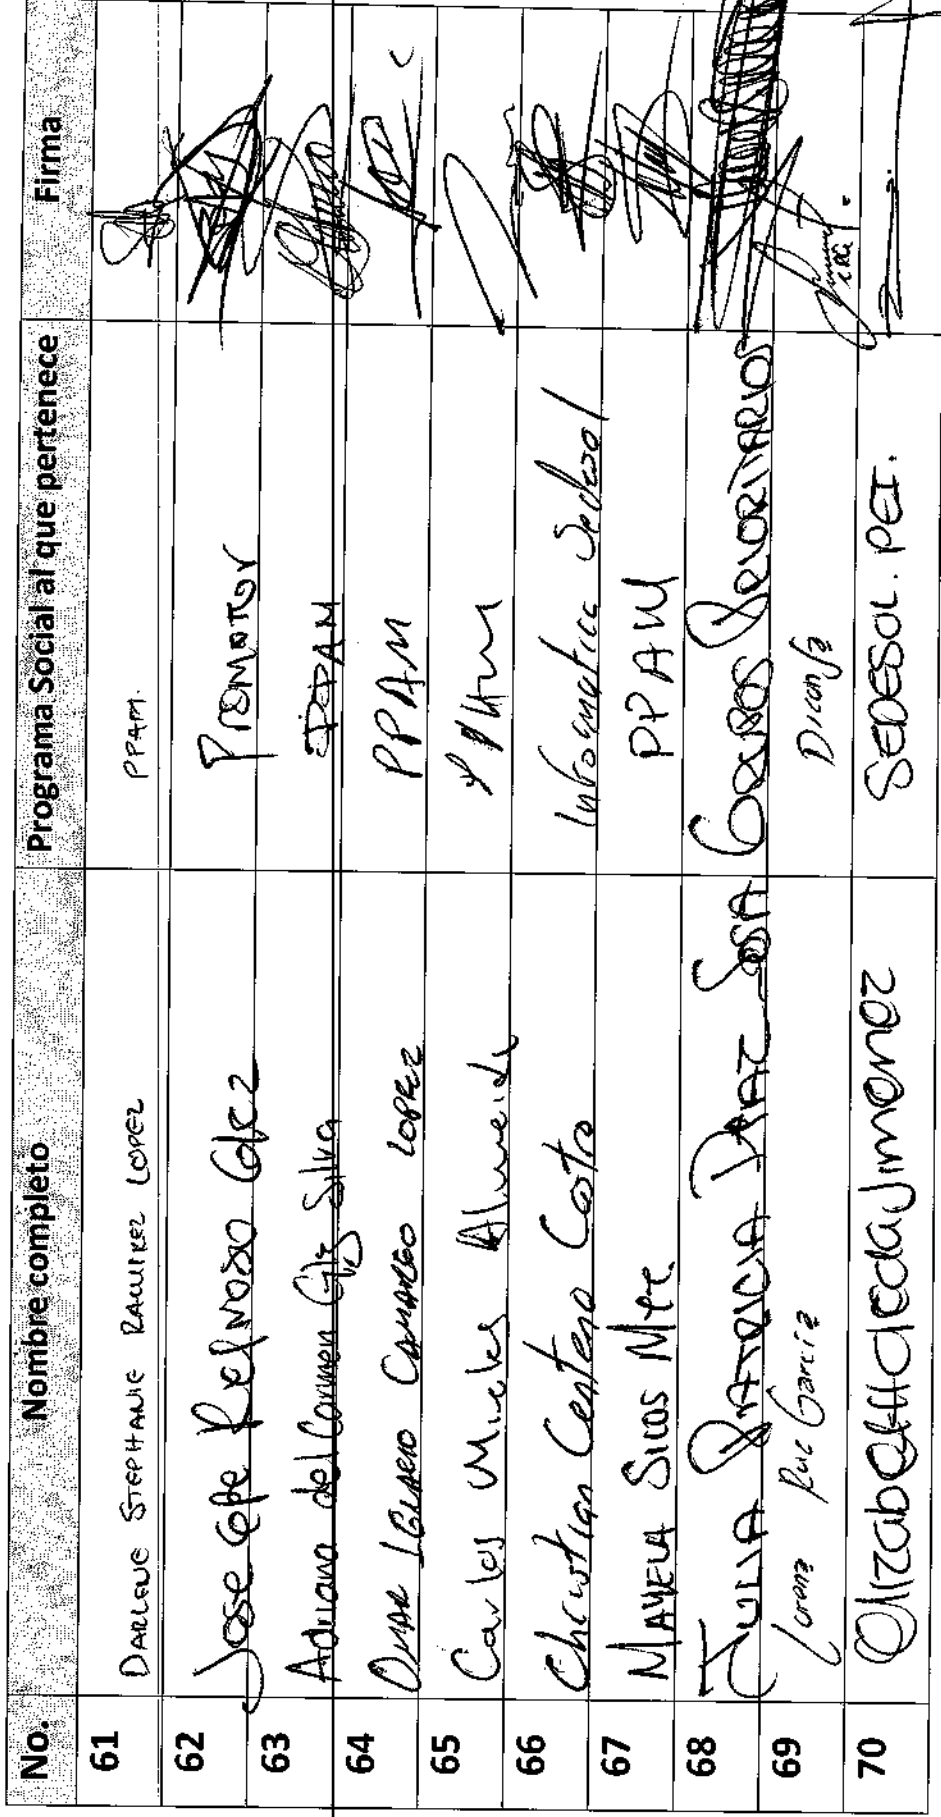 No. Nombre completo Programa Social al que pertenece Firma
61 DARLENE STEPHANIE RAMIREZ LOPEZ PPAM.
62 Jose Promotor
63 Adriana del Carmen Glz Silva PPAM
64 OMAR CAMARGO LOPEZ PPAM
65 Carlos Mireles
66 Christian Centeno Informatica Sedesol
67 MAYELA PPAM
68 JULIA PATRICIA DIAZ SOSA GRUPOS PRIORITARIOS
69 Lorena Ruiz García Diconsa
70 Elizabeth Jimenez SEDESOL. PEI.